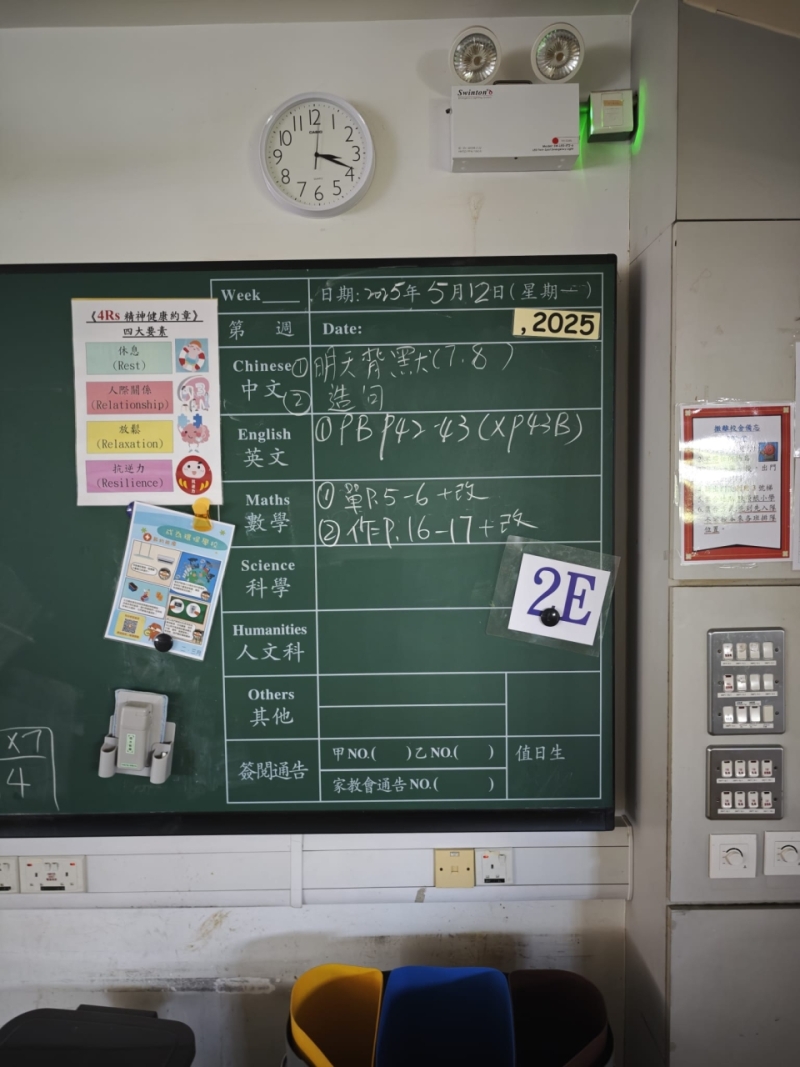 Swinton's
12
11
1
10
2
9
3
8
4
7
6
5
Week____
日期: 2025年5月12日(星期一)
第 週
Date:
, 2025
Chinese
中文
①明天背默(7.8)
②造句
English
英文
①PB P42-43(XP43B)
Maths
數學
①單P.5-6+改
②作P.16-17+改
Science
科學
2E
Humanities
人文科
Others
其他
簽閱通告
甲NO.( )乙NO.( )
家教會通告NO.( )
值日生
《4Rs 精神健康約章》
四大要素
休息
(Rest)
人際關係
(Relationship)
放鬆
(Relaxation)
抗逆力
(Resilience)
x7
4